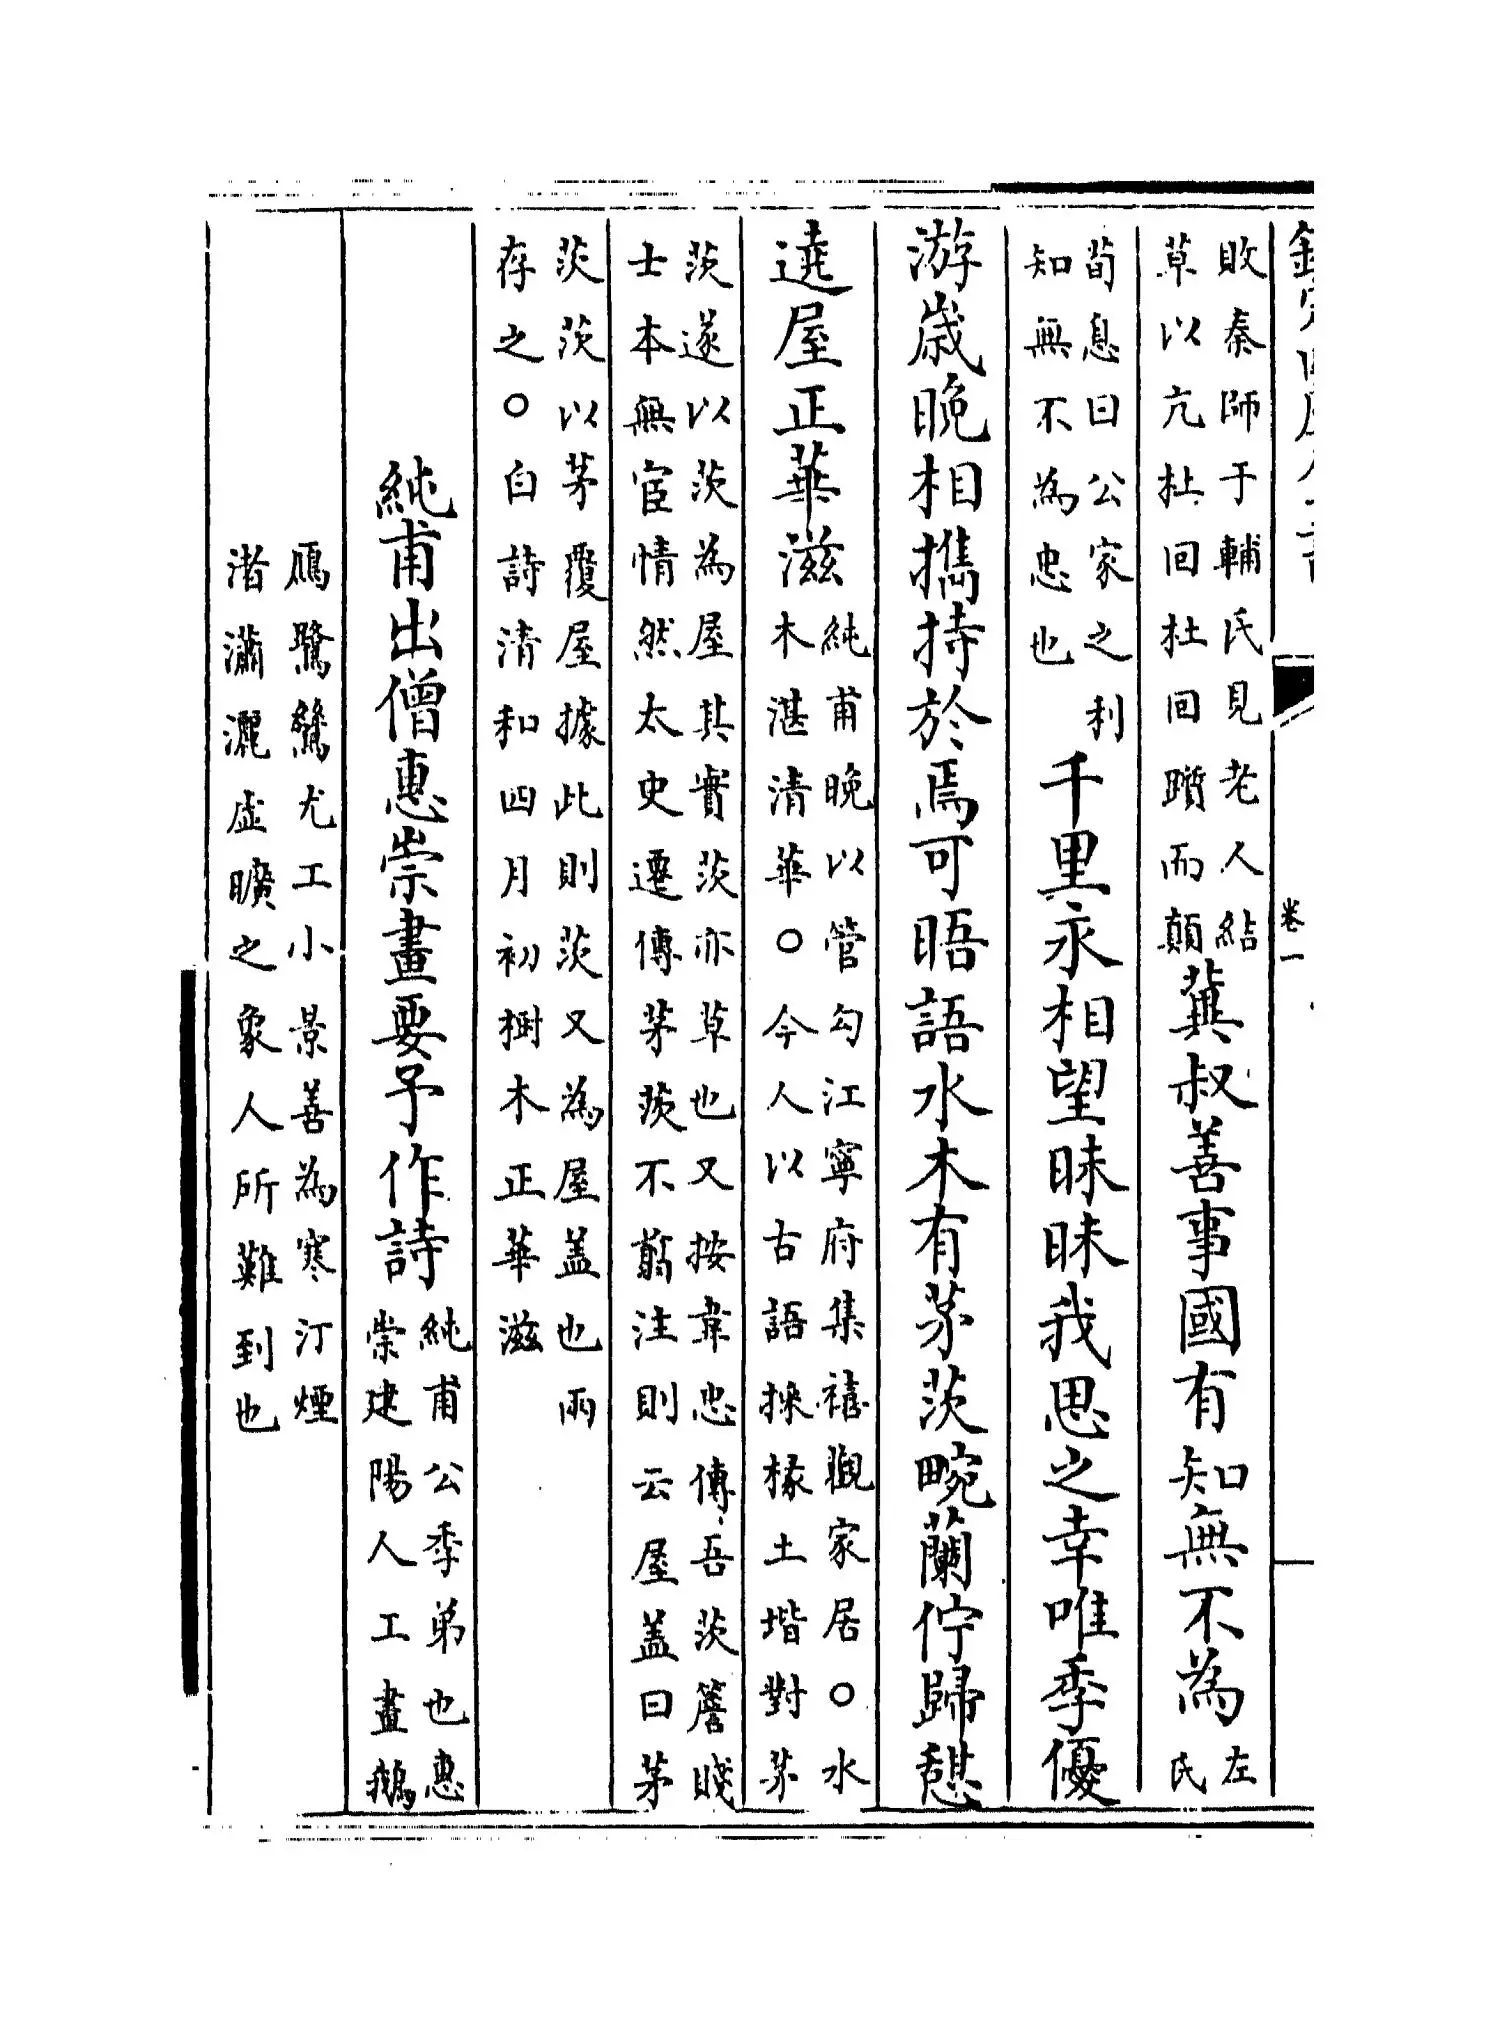 卷一
敗秦師于輔氏見老人結
草以亢杜回杜回躓而顛
冀叔善事國有知無不為
左
氏
荀息曰公家之利
知無不為忠也
千里永相望昧昧我思之幸唯季優
游歲晚相攜持於焉可晤語水木有茅茨畹蘭佇歸憇
遶屋正華滋
純甫晚以管勾江寧府集禧觀家居○水
木湛清華○今人以古語採椽土堦對茅
茨遂以茨為屋其實茨亦草也又按韋忠傳吾茨簷賤
士本無宦情然太史遷傳茅茨不翦注則云屋盖曰茅
茨茨以茅覆屋據此則茨又為屋盖也兩
存之○白詩清和四月初樹木正華滋
純甫出僧惠崇畫要予作詩
純甫公季弟也惠
崇建陽人工畫鵝
鴈鷺鷥尤工小景善為寒汀煙
渚瀟灑虛曠之象人所難到也